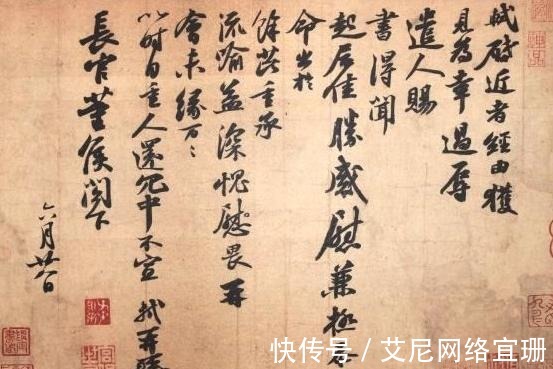 軾啓近者經由獲
見為幸過辱
遣人賜
書得聞
起居佳勝感慰兼極忝
命出於
餘芘重承
流喻益深愧慰畏再
會未緣万〻
以時自重人還冗中不宣 軾再拜
長官董侯閤下
六月廿八日
快传号 / 艾尼网络宜珊